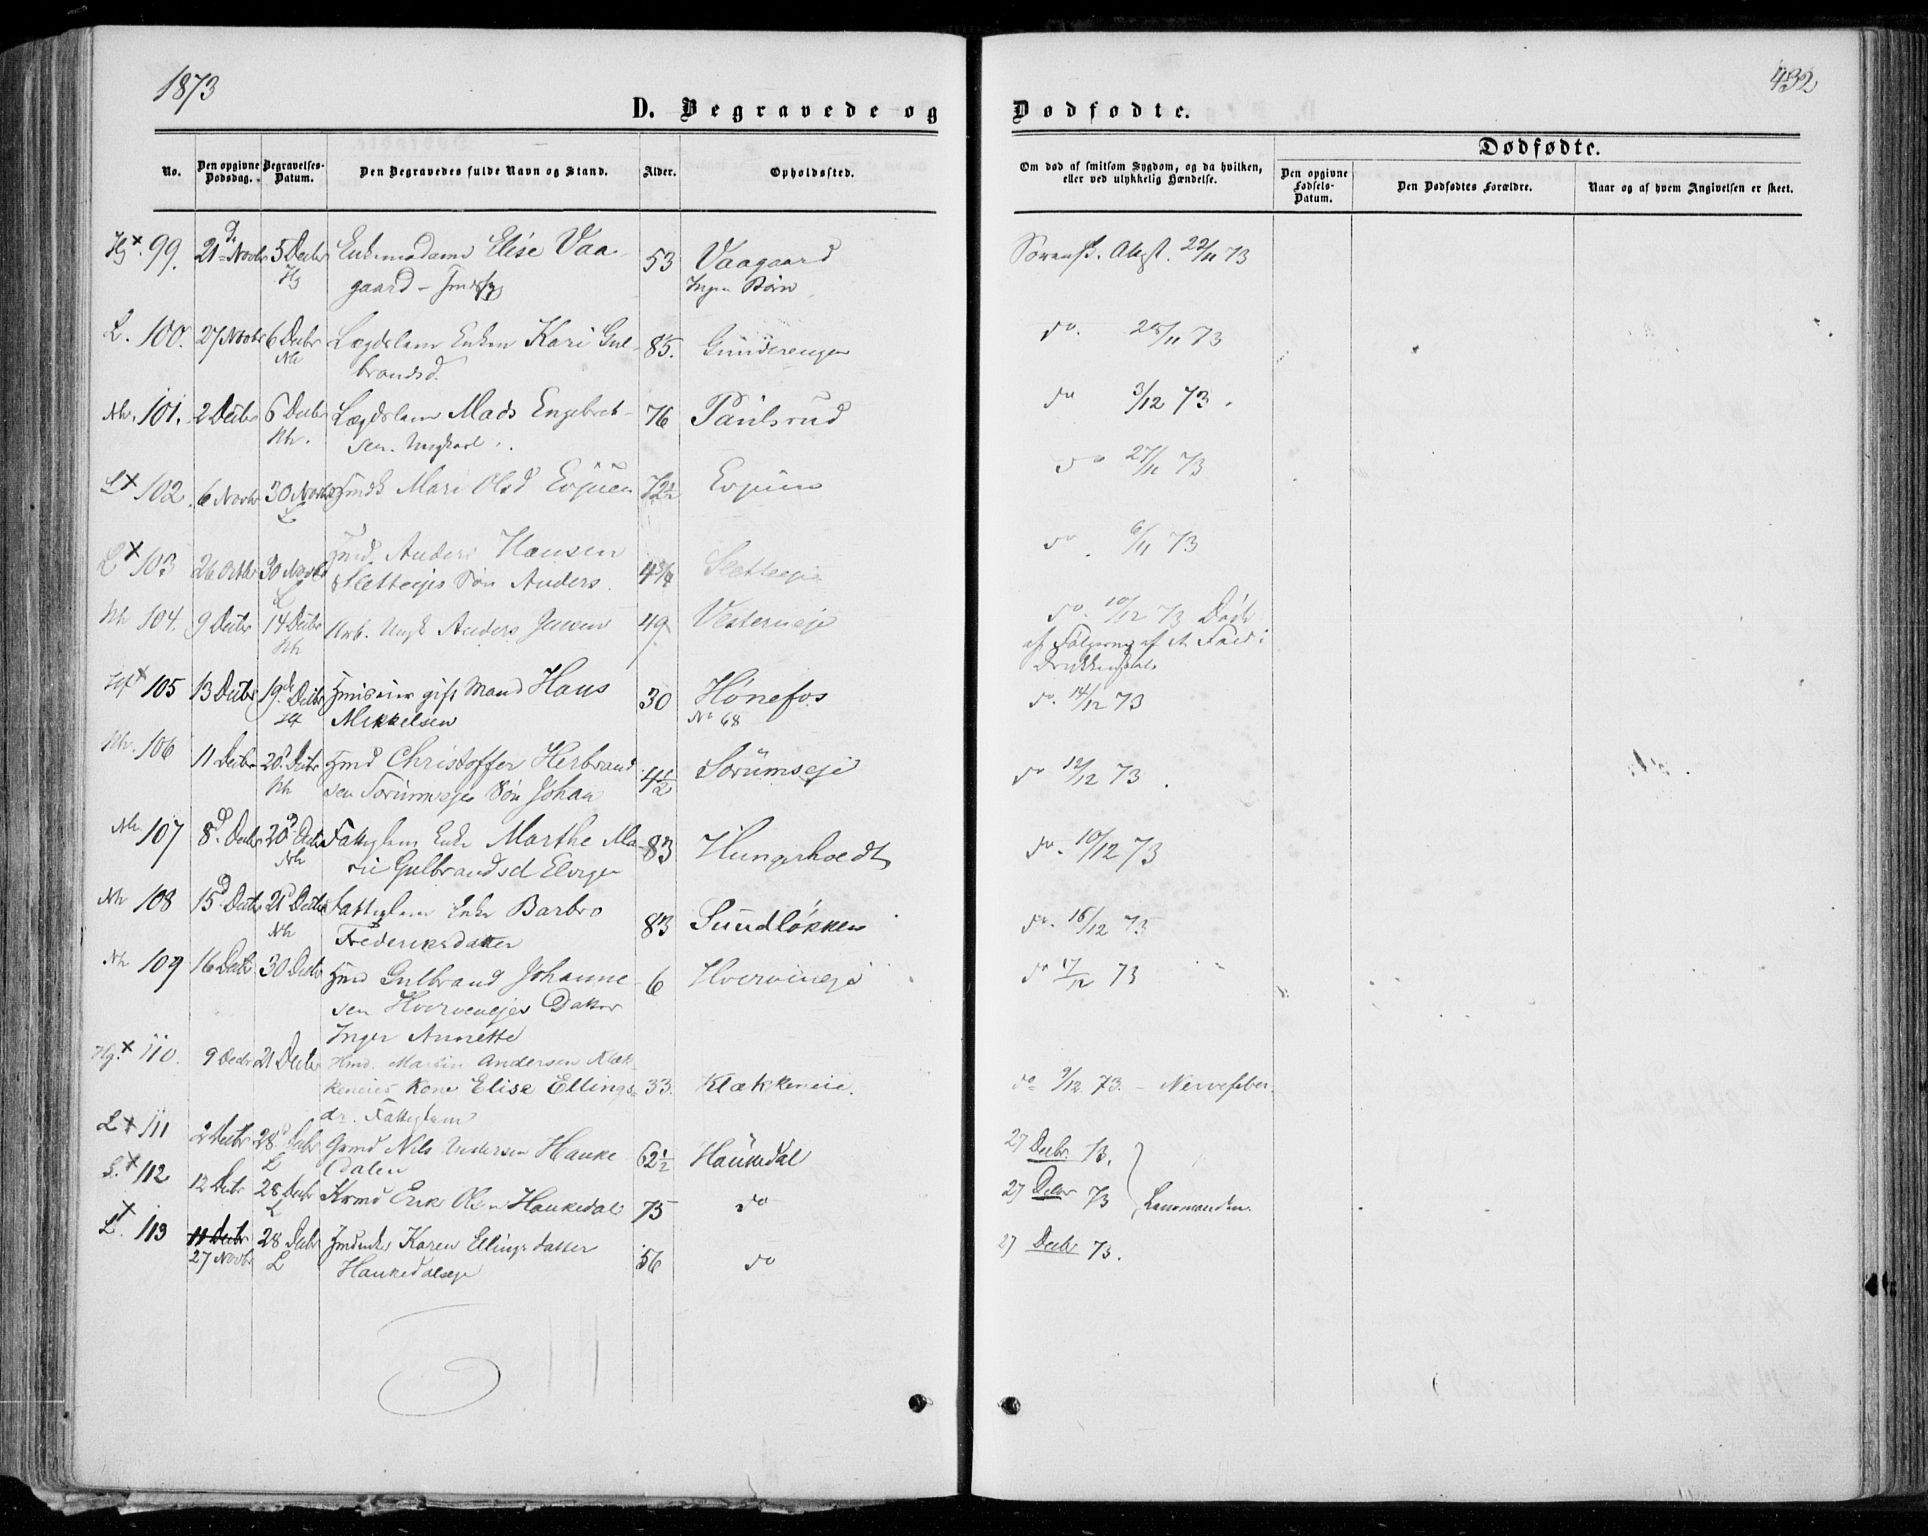 1873
432
D. Begravede og Dødfødte.
No. Den opgivne Dødsdag. Begravelses-Datum. Den Begravedes fulde Navn og Stand. Alder. Opholdssted.
Om død af smitsom Sygdom, og da hvilken, eller ved ulykkelig Hændelse.
Dødfødte.
Den opgivne Fødsels-Datum. Den Dødfødtes Forældre. Naar og af hvem Angivelsen er skeet.
Hg × 99. 21 Novbr 5 Decbr Enkemadame Elise Vaa- 53 Vaagaard 22/11 73
Hg gaard - Ingen Børn
L. 100. 27 Novbr 6 Decbr Lægdslem Enken Kari Gul- 85. Gunderengen do. 28/11 73
Nh brandsd.
Nh. 101. 2 Decbr 6 Decbr Lægdslem Mads Engebret- 76 Paulsrud do 3/12 73.
Nh. sen. Ungkarl.
L × 102 6 Novbr 30 Novbr Mari Olsd Evjuen 72½ Evjuen do 27/11 73
L
L × 103 26 Octbr 30 Novbr Anders Hansen do 6/11 73
L Sletteejes Søn Anders. 4¾ Sletteeje
Nh 104. 9 Decbr 14 Decbr Arb. Ungk Anders Jensen 49 Vesterneje do. 10/12 73 Døde
Nh af Følgerne af et Fald i
Drukkenskab.
Hf × 105 13 Decbr 19de Decbr gift Mand Hans 30 Hønefos do. 14/12 73
Hf Mikkelsen No 68
Nh. 106 11 Decbr 20 Decbr Hmd Christoffer Herbrand 4½ Sørumseje do 12/12 73.
Nh sen Sørumsejes Søn Johan
Nh 107 8d Decbr 20d Decbr Fattiglem Enke Marthe Ma- 83 Hungerholdt do. 10/12 73
Nh rie Gulbrandsd
Nh 108 15d Decbr 21d Decbr Fattiglem Enke Barbro 83 Sundløkken do. 16/12 73
Nh Frederiksdatter
Nh 109 16 Decbr 30 Decbr Hmd Gulbrand Johanne- 6 Hverveneje do 17/12 73
sen Hvervenejes Datter
Inger Annette
Hg. × 110. 9 Decbr 21 Decbr Hmd. Martin Andersen Klæk-
keneies Kone Elise Ellings- 33. Klækkeneie. do 9/12. 73. - Nervefeber
dr. Fattiglem
L × 111 2 Decbr 28d Decbr Gaard Nils Andersen Hauke 62½ Haukedal 27 Decbr. 73.
L (dalen
L. × 112 12 Decbr 28 Decbr Erik Olsen Haukedal 75 do 27 Decbr 73 Lensmanden.
L
L. × 113 11 Decbr 28 Decbr Karen Ellingsdatter 56 do 27 Decbr 73.
27 Novbr L Haukedalseje